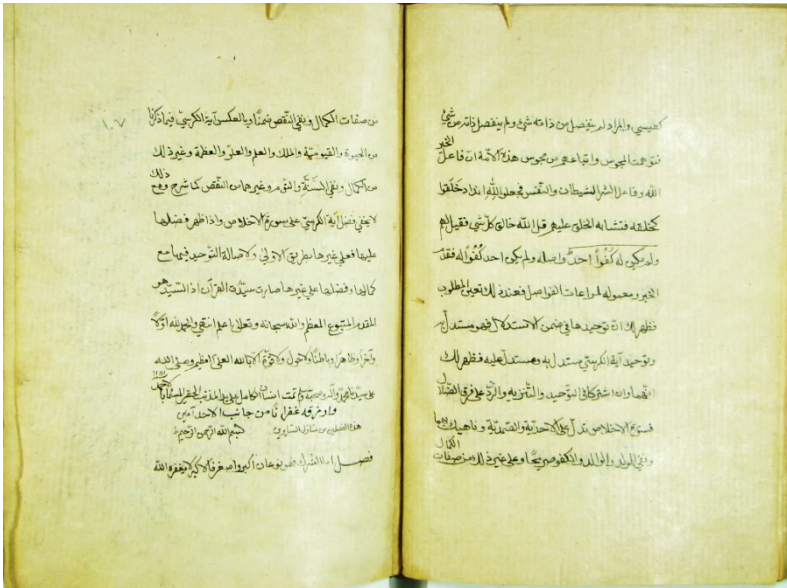 كعيسى والمراد لم ينفصل من ذاته شئ ولم ينفصل ذاته من شئ
فتوهمت المجوس واتباعهم من مجوس هذه الامة ان فاعل الخير
الله وفاعل الشر الشيطان والنفس في جعل الله انداد خلقوا
كخلقه فتشابه الخلق عليهم قل الله خالق كل شي فقيل لهم
ولم يكن له كفوا احد واصله ولم يكن احد كفوا له فقدم
الخبر ومعموله لمراعات الفواصل فعند ذلك تعين المطلوب
فظهر لك ان توحيدها في ضمن الاستدلال فهو مستدل
وتوحيد آية الكرسي مستدل به ومستدل عليه فظهر لك
انهما وان اشتركا في التوحيد والتنزيه والرد على فرق الضلال
فسورة الاخلاص تدل على الاحدية والصمدية وناهيك بهما
ونفي الولد والوالد والكفو صريحا وعلى غير ذلك من صفات الكمال
١٠٧
من صفات الكمال ونفي النقص ضمنا وبالعكس آية الكرسي فيما ذكرنا
من الحيوة والقيومية والملك والعلم والعلو والعظمة وغير ذلك
من الكمال ونفي السنة والنوم وغيرهما من النقص كما شرح ومع ذلك
لا يخفي فضل آية الكرسي على سورة الاخلاص واذا ظهر فضلها
عليها فعلى غيرها بطريق الاولى ولاصالة التوحيد فيها مع
كمالها وفضلها على غيرها صارت سيدة القرآن اذ السيد هو
المقدم المتبوع المعظم والله سبحانه وتعالى اعلم انتهى والحمد لله اولا
وآخرا وظاهرا وباطنا ولا حول ولا قوة الا بالله العلي العظيم وصلى الله
على سيدنا محمد وآله وصحبه وسلم تمت الكامل على يد المذنب الحقير
وارزقه غفرانا من جانب الاحد آمين
هذا الفصل من منازل
بسم الله الرحمن الرحيم
فصل اما الشرك فهو نوعان اكبر واصغر فالاكبر لا يغفره الله